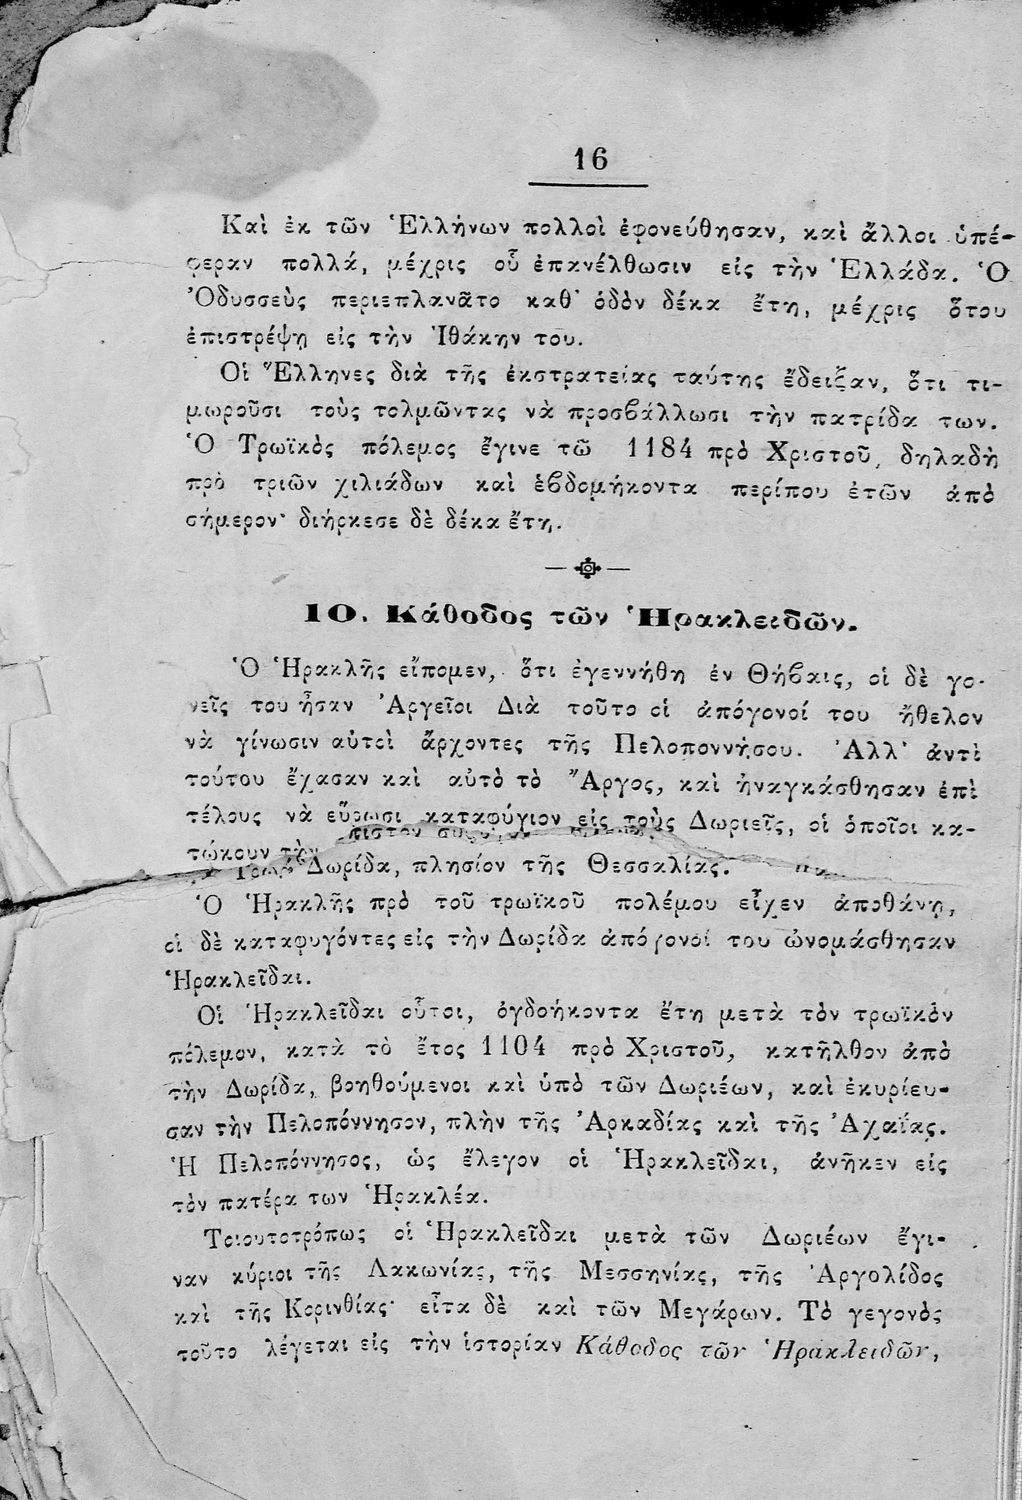 16
Καὶ ἐκ τῶν Ἑλλήνων πολλοὶ ἐφονεύθησαν, καὶ ἄλλοι ὑπέ-
φεραν πολλά, μέχρις οὗ ἐπανέλθωσιν εἰς τὴν Ἑλλάδα. Ὁ
Ὀδυσσεὺς περιεπλανᾶτο καθ' ὁδὸν δέκα ἔτη, μέχρις ὅτου
ἐπιστρέψῃ εἰς τὴν Ἰθάκην του.
Οἱ Ἕλληνες διὰ τῆς ἐκστρατείας ταύτης ἔδειξαν, ὅτι τι-
μωροῦσι τοὺς τολμῶντας νὰ προσβάλλωσι τὴν πατρίδα των.
Ὁ Τρωϊκὸς πόλεμος ἔγινε τῶ 1184 πρὸ Χριστοῦ, δηλαδὴ
πρὸ τριῶν χιλιάδων καὶ ἑβδομήκοντα περίπου ἐτῶν ἀπὸ
σήμερον· διήρκεσε δὲ δέκα ἔτη.
10. Κάθοδος τῶν Ἡρακλειδῶν.
Ὁ Ἡρακλῆς εἴπομεν, ὅτι ἐγεννήθη ἐν Θήβαις, οἱ δὲ γο-
νεῖς του ἦσαν Ἀργεῖοι Διὰ τοῦτο οἱ ἀπόγονοί του ἤθελον
νὰ γίνωσιν αὐτοὶ ἄρχοντες τῆς Πελοποννήσου. Ἀλλ' ἀντὶ
τούτου ἔχασαν καὶ αὐτὸ τὸ Ἄργος, καὶ ἠναγκάσθησαν ἐπὶ
τέλους νὰ εὕρωσι καταφύγιον εἰς τοὺς Δωριεῖς, οἱ ὁποῖοι κα-
τῴκουν τὴν Δωρίδα, πλησίον τῆς Θεσσαλίας.
Ὁ Ἡρακλῆς πρὸ τοῦ τρωϊκοῦ πολέμου εἶχεν ἀποθάνῃ,
οἱ δὲ καταφυγόντες εἰς τὴν Δωρίδα ἀπόγονοί του ὠνομάσθησαν
Ἡρακλεῖδαι.
Οἱ Ἡρακλεῖδαι οὗτοι, ὀγδοήκοντα ἔτη μετὰ τὸν τρωϊκὸν
πόλεμον, κατὰ τὸ ἔτος 1104 πρὸ Χριστοῦ, κατῆλθον ἀπὸ
τὴν Δωρίδα, βοηθούμενοι καὶ ὑπὸ τῶν Δωριέων, καὶ ἐκυρίευ-
σαν τὴν Πελοπόννησον, πλὴν τῆς Ἀρκαδίας καὶ τῆς Ἀχαΐας.
Ἡ Πελοπόννησος, ὡς ἔλεγον οἱ Ἡρακλεῖδαι, ἀνῆκεν εἰς
τὸν πατέρα των Ἡρακλέα.
Τοιουτοτρόπως οἱ Ἡρακλεῖδαι μετὰ τῶν Δωριέων ἔγι-
ναν κύριοι τῆς Λακωνίας, τῆς Μεσσηνίας, τῆς Ἀργολίδος
καὶ τῆς Κορινθίας· εἶτα δὲ καὶ τῶν Μεγάρων. Τὸ γεγονὸς
τοῦτο λέγεται εἰς τὴν ἱστορίαν Κάθοδος τῶν Ἡρακλειδῶν,